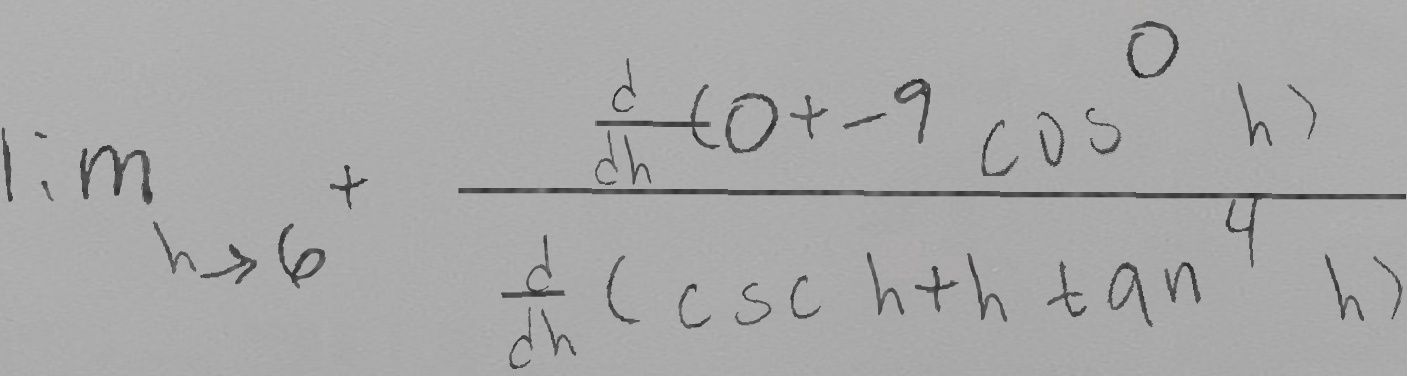 \lim_{h \to 6^+} \frac{\frac{d}{dh}(0 + -9 \cos^0 h)}{\frac{d}{dh}(\csc h + h \tan^4 h)}